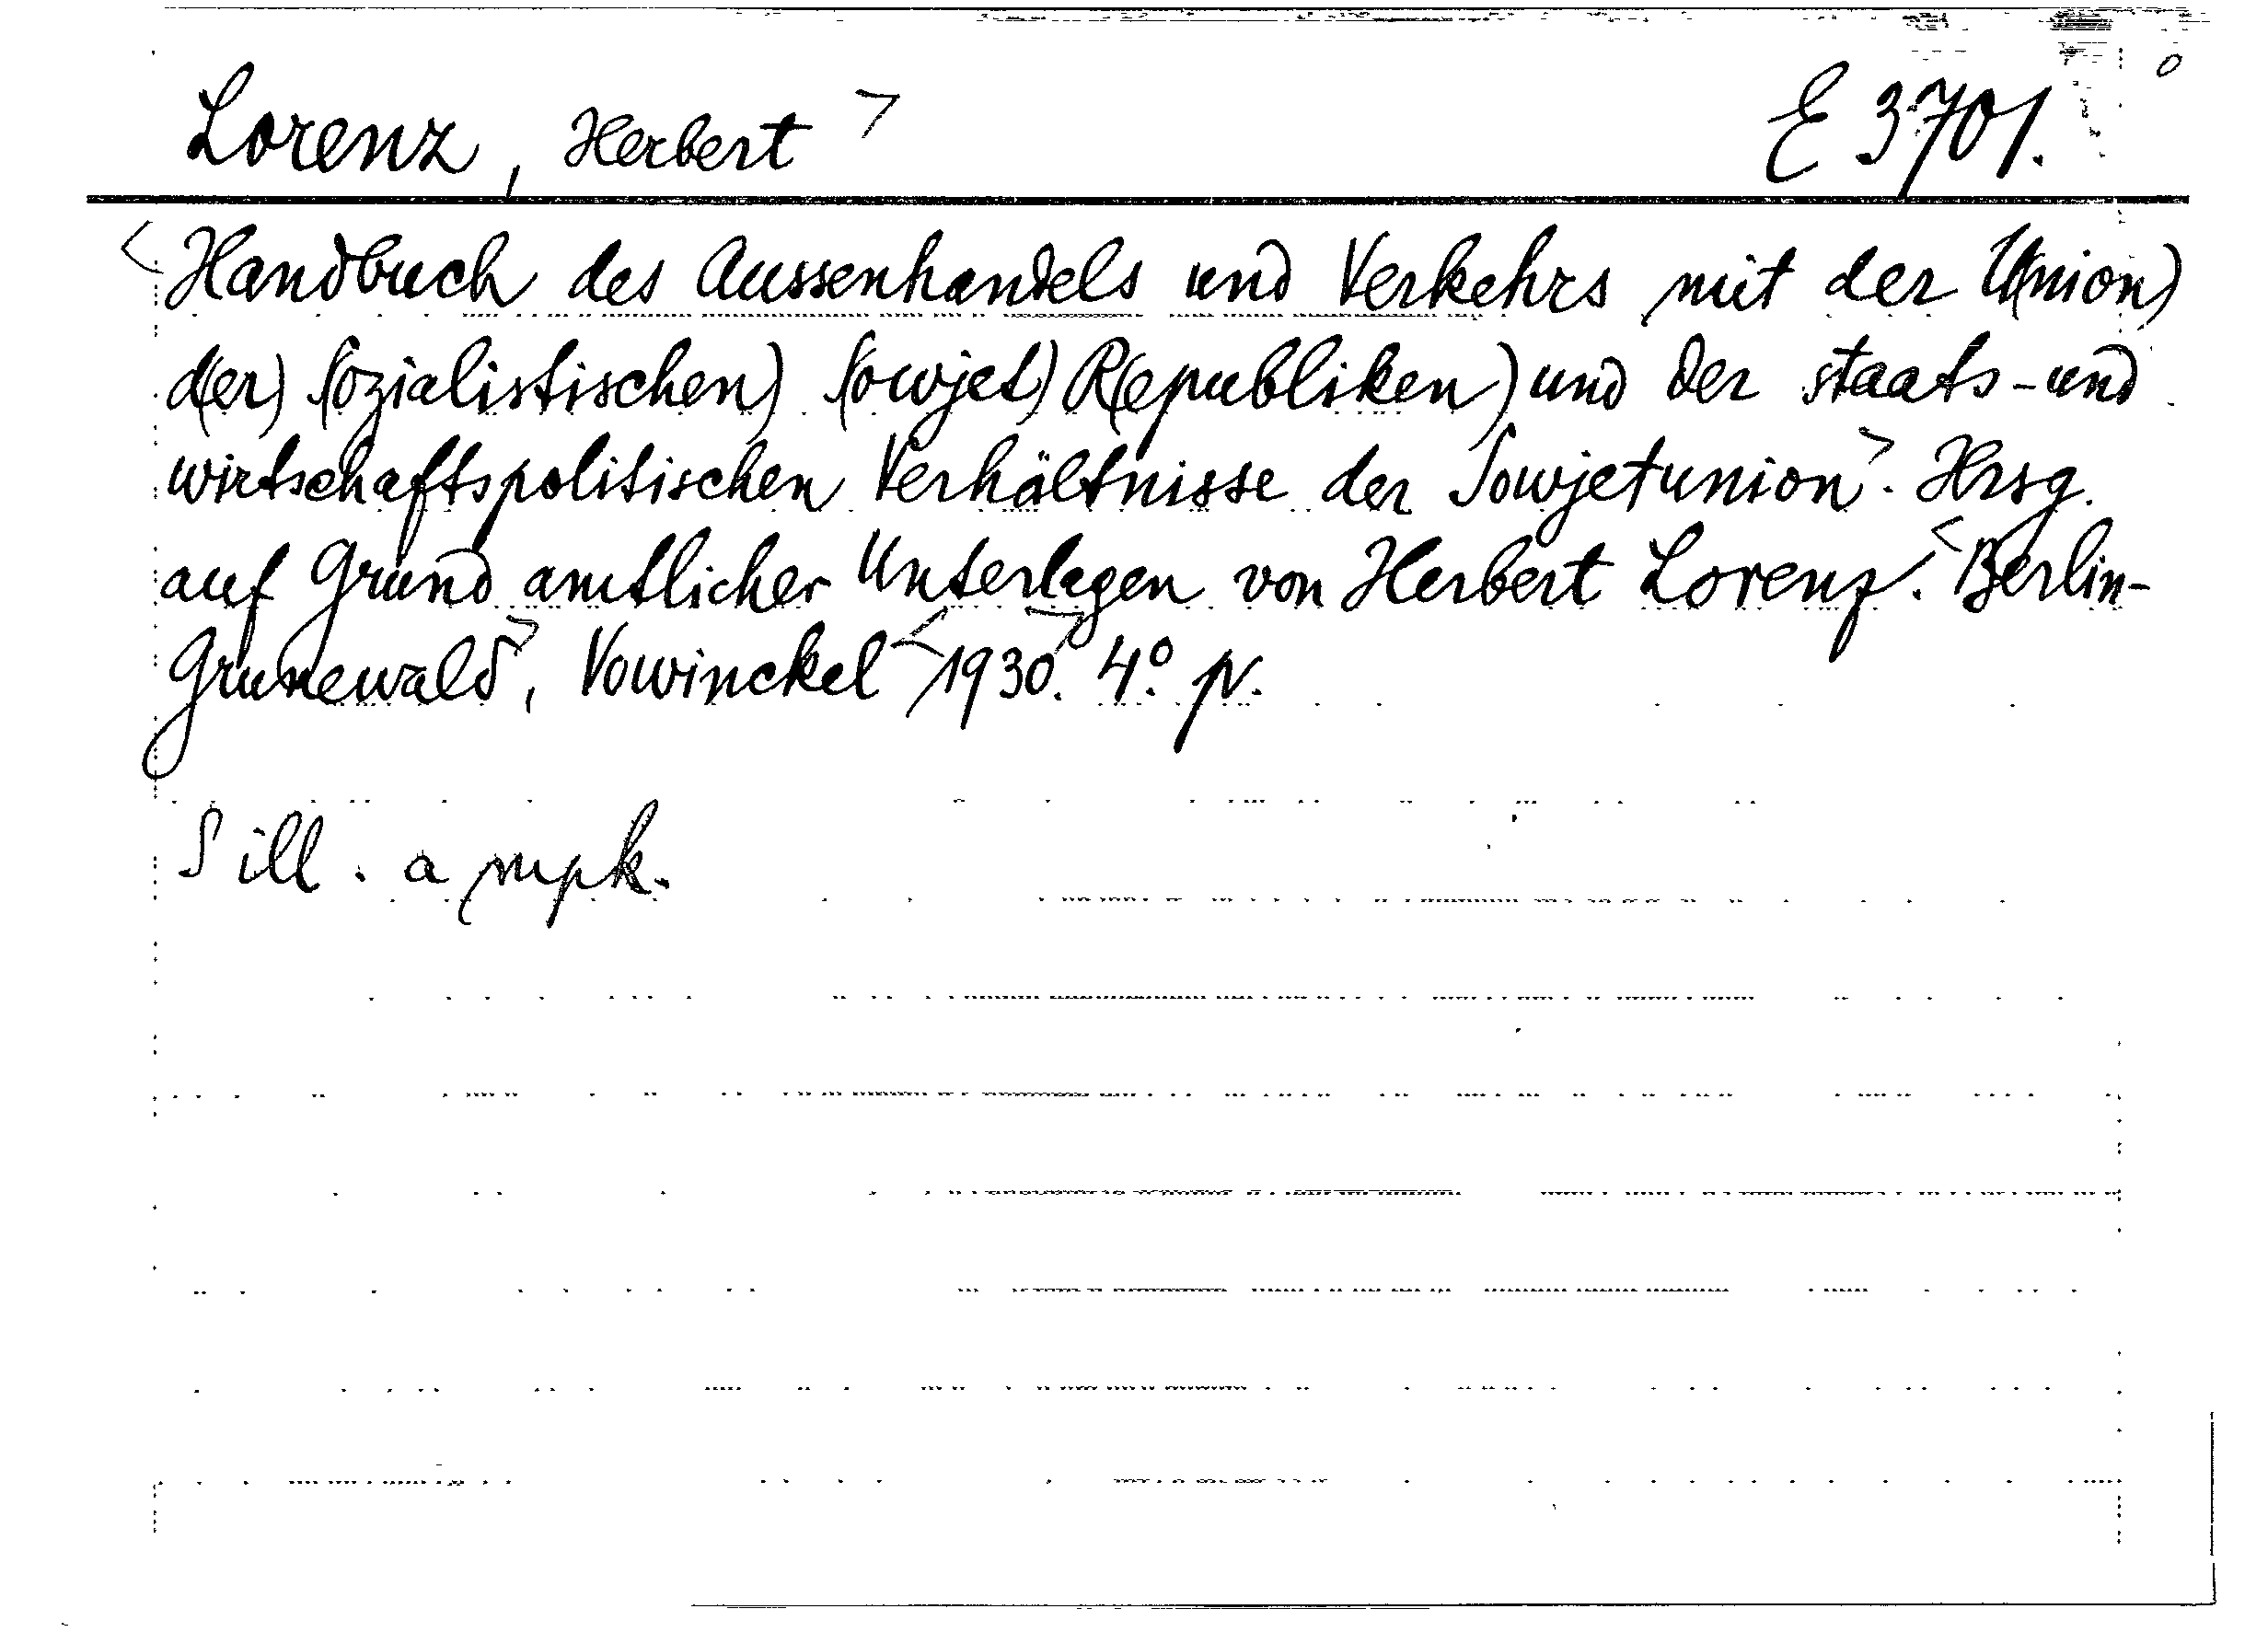 Lorenz, Herbert > E 3701.
<Handbuch des Aussenhandels und Verkehrs mit der U(nion)
d(er) S(ozialistischen) S(owjet) R(epubliken) und der staats- und
wirtschaftspolitischen Verhältnisse der Sowjetunion>. Hrsg.
auf Grund amtlicher Unterlagen von Herbert Lorenz. <Berlin-
Grunewald>, Vowinckel <1930>. 4°. pv.
S ill. a mpk.